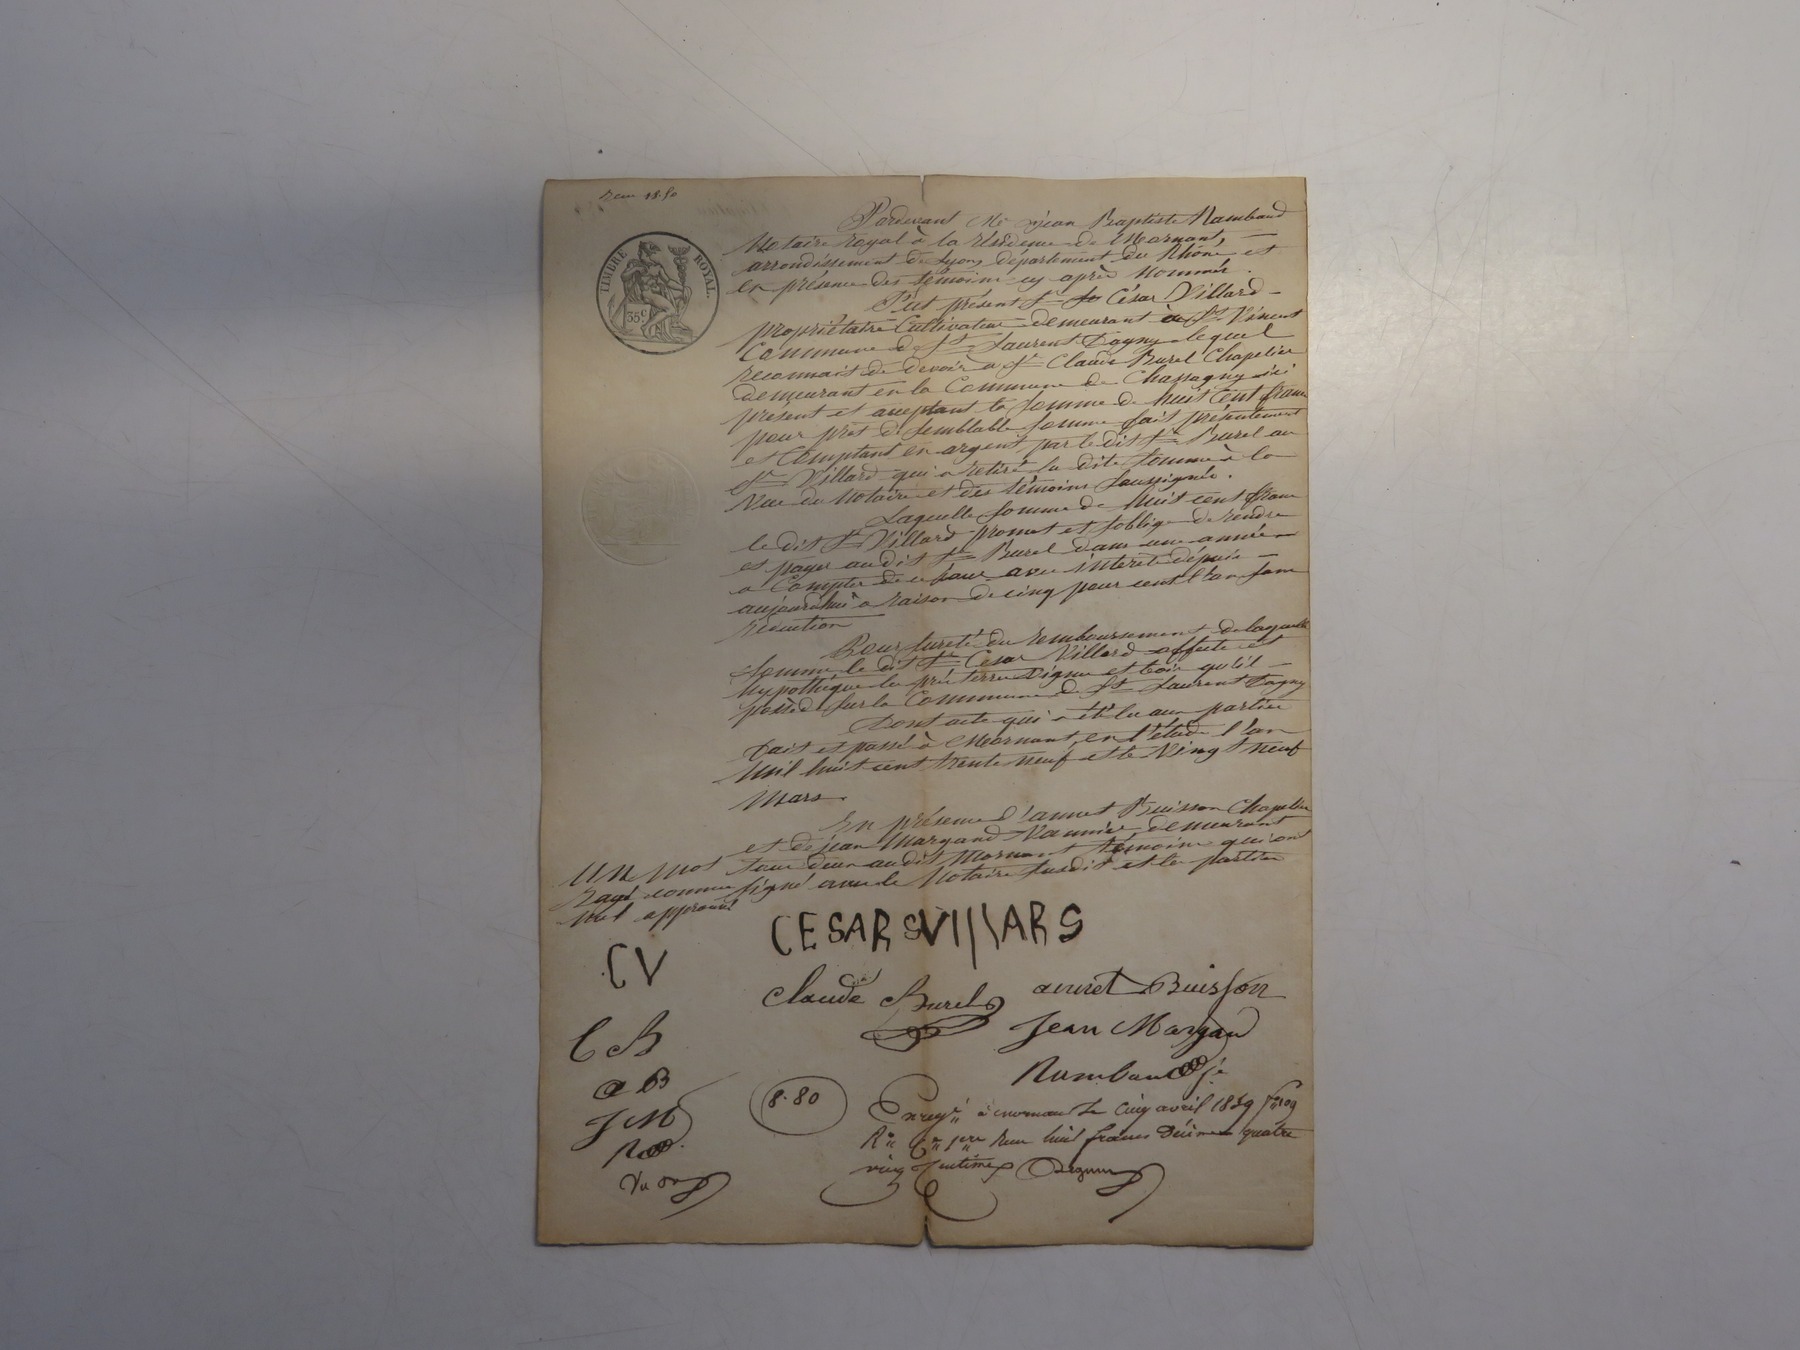 reçu 18.80
TIMBRE ROYAL.
35 c
Pardevant Me jean Baptiste Rambaud
Notaire royal à la résidence de Mornant,
arrondissement de Lyon, département du Rhône et
en présence des témoins cy après Nommés.
S'est présent Sr César Villard
propriétaire Cultivateur demeurant à St Vincent
Commune de St Laurent Dagny lequel
reconnait de devoir à Sr Claude Burel Chapelier
demeurant en la Commune de Chassagny ici
présent et acceptant la somme de huit cent francs
pour prêt de semblable somme fait présentement
et Comptant en argent par le dit Sr Burel au
Sr Villard qui a retiré la dite somme à la
Vue du Notaire et des témoins soussignés.
Laquelle somme de huit cent francs
le dit Sr Villard promet et s'oblige de rendre
et payer au dit Sr Burel dans une année
a Compter de ce jour avec intérêts depuis
aujourd'hui a raison de cinq pour cent l'an sans
rétention
Pour sureté du remboursement de laquelle
somme le dit Sr César Villard affecte et
hypothèque les pré terre Vigne et bois qu'il
possède sur la Commune de St Laurent Dagny
Dont acte qui a été lu aux parties
fait et passé à Mornant en l'étude l'an
Mil huit cent trente neuf et le Vingt neuf
Mars.
En présence d'annet Buisson Chapelier
et de jean Margand Vannier demeurant
tous deux au dit Mornant témoins qui ont
signé avec le Notaire susdit et les parties
Un Mot
Rayé comme
Nul approuvé
CESARSVILLARS
CV
Claude Burel annet Buisson
Jean Margand
Rambaud
CB
aB
JM
R
8.80
Enregé à mornant le cinq avril 1839 fo 109
Ro Ce pre reçu huit francs Décimes quatre
vingt centimes